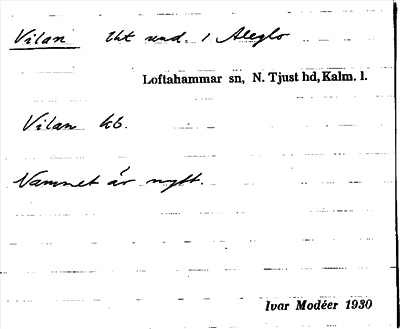 Vilan Ut und. 1 Aleglo
Loftahammar sn, N. Tjust hd, Kalm. l.
Vilan kb.
Namnet är nytt.
Ivar Modéer 1930